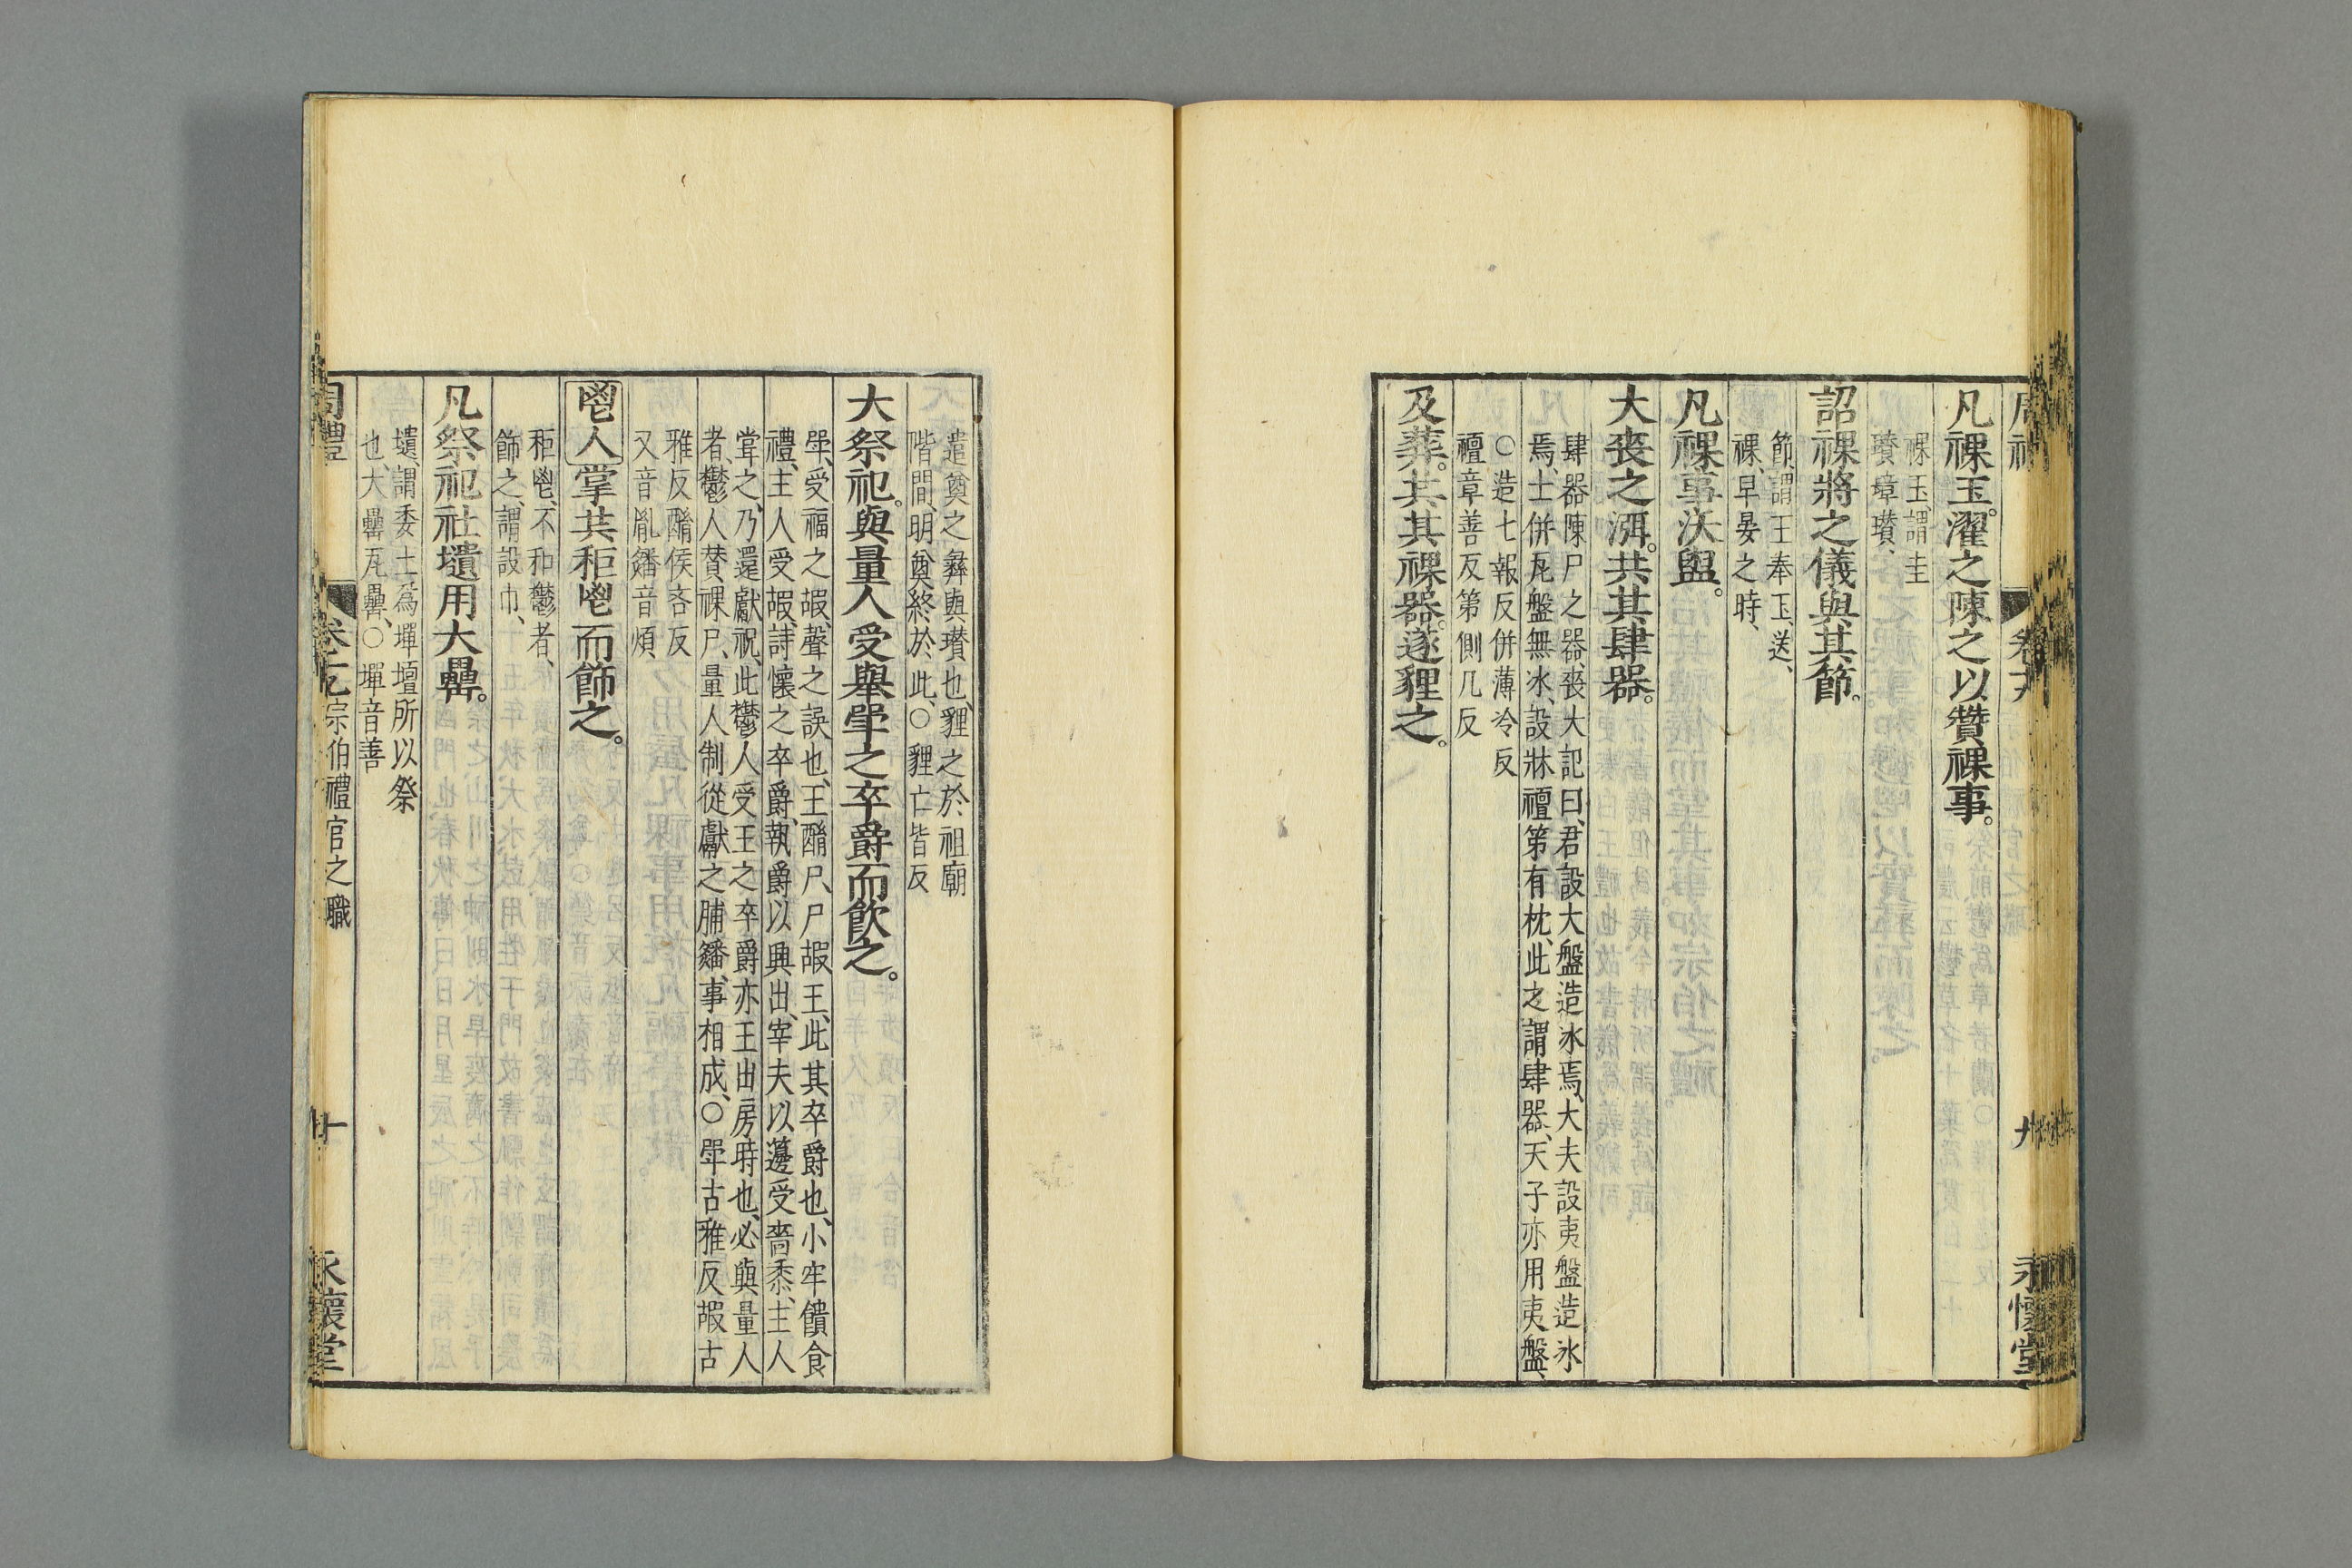 凡祼玉。濯之陳之以贊祼事。
祼玉、謂圭
瓚璋瓚、
詔祼將之儀與其節。
節、謂王奉玉、送、
祼、早晏之時、
凡祼事沃盥。
大喪之渳。共其肆器。
肆器陳尸之器、喪大記曰、君設大盤造冰焉、大夫設夷盤造冰
焉、士併瓦盤無冰、設牀襢第有枕、此之謂肆器、天子亦用夷盤、
○造七報反併薄冷反
襢章善反第側几反
及葬。共其祼器。遂貍之。
遣奠之彝與瓚也、貍之於祖廟
階間、明奠終於此、○貍亡皆反
大祭祀。與量人受舉斝之卒爵而飲之。
斝、受福之嘏、聲之誤也、王酳尸、尸嘏王、此其卒爵也、小牢饋食
禮、主人受嘏、詩懷之卒爵、執爵以興出、宰夫以籩受嗇黍、主人
嘗之、乃還獻祝、此鬱人受王之卒爵亦王出房時也、必與量人
者、鬱人贊祼尸、量人制從獻之脯燔、事相成、○斝古雅反嘏古
雅反酳侯吝反
又音胤燔音煩
鬯人掌共秬鬯而飾之。
秬鬯、不和鬱者、
飾之、謂設巾、
凡祭祀社壝用大罍。
壝、謂委土爲墠壇所以祭
也、大罍瓦罍、○墠音善
周禮
宗伯禮官之職
十
永懷堂